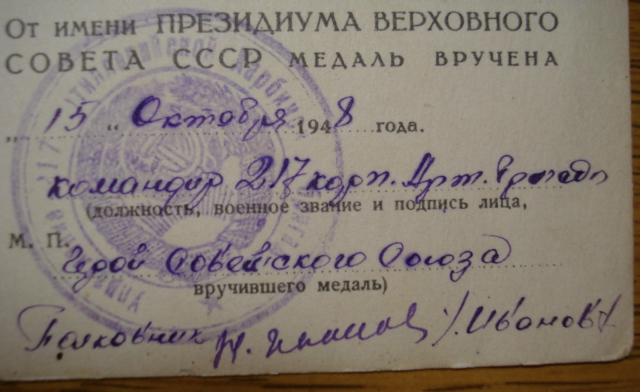 От имени ПРЕЗИДИУМА ВЕРХОВНОГО
СОВЕТА СССР МЕДАЛЬ ВРУЧЕНА
„15" Октября 1948 года.
командир 217 корп. Арт. Бригады
(должность, военное звание и подпись лица,
М. П.
Герой Советского Союза
вручившего медаль)
Полковник /Иванов/